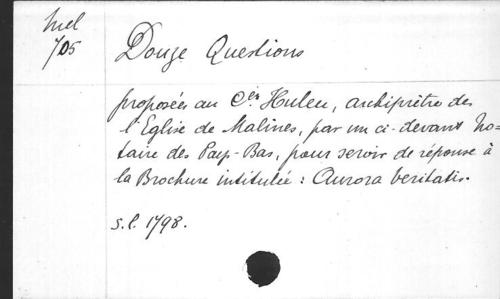 Mel
705
Douze Questions
proposées au Cen Huleu, archiprêtre des
l'Eglise de Malines, par un ci-devant No-
taire des Pays-Bas, pour servir de réponse à
la Brochure intitulée : Aurora Veritatis.
s.l. 1798.